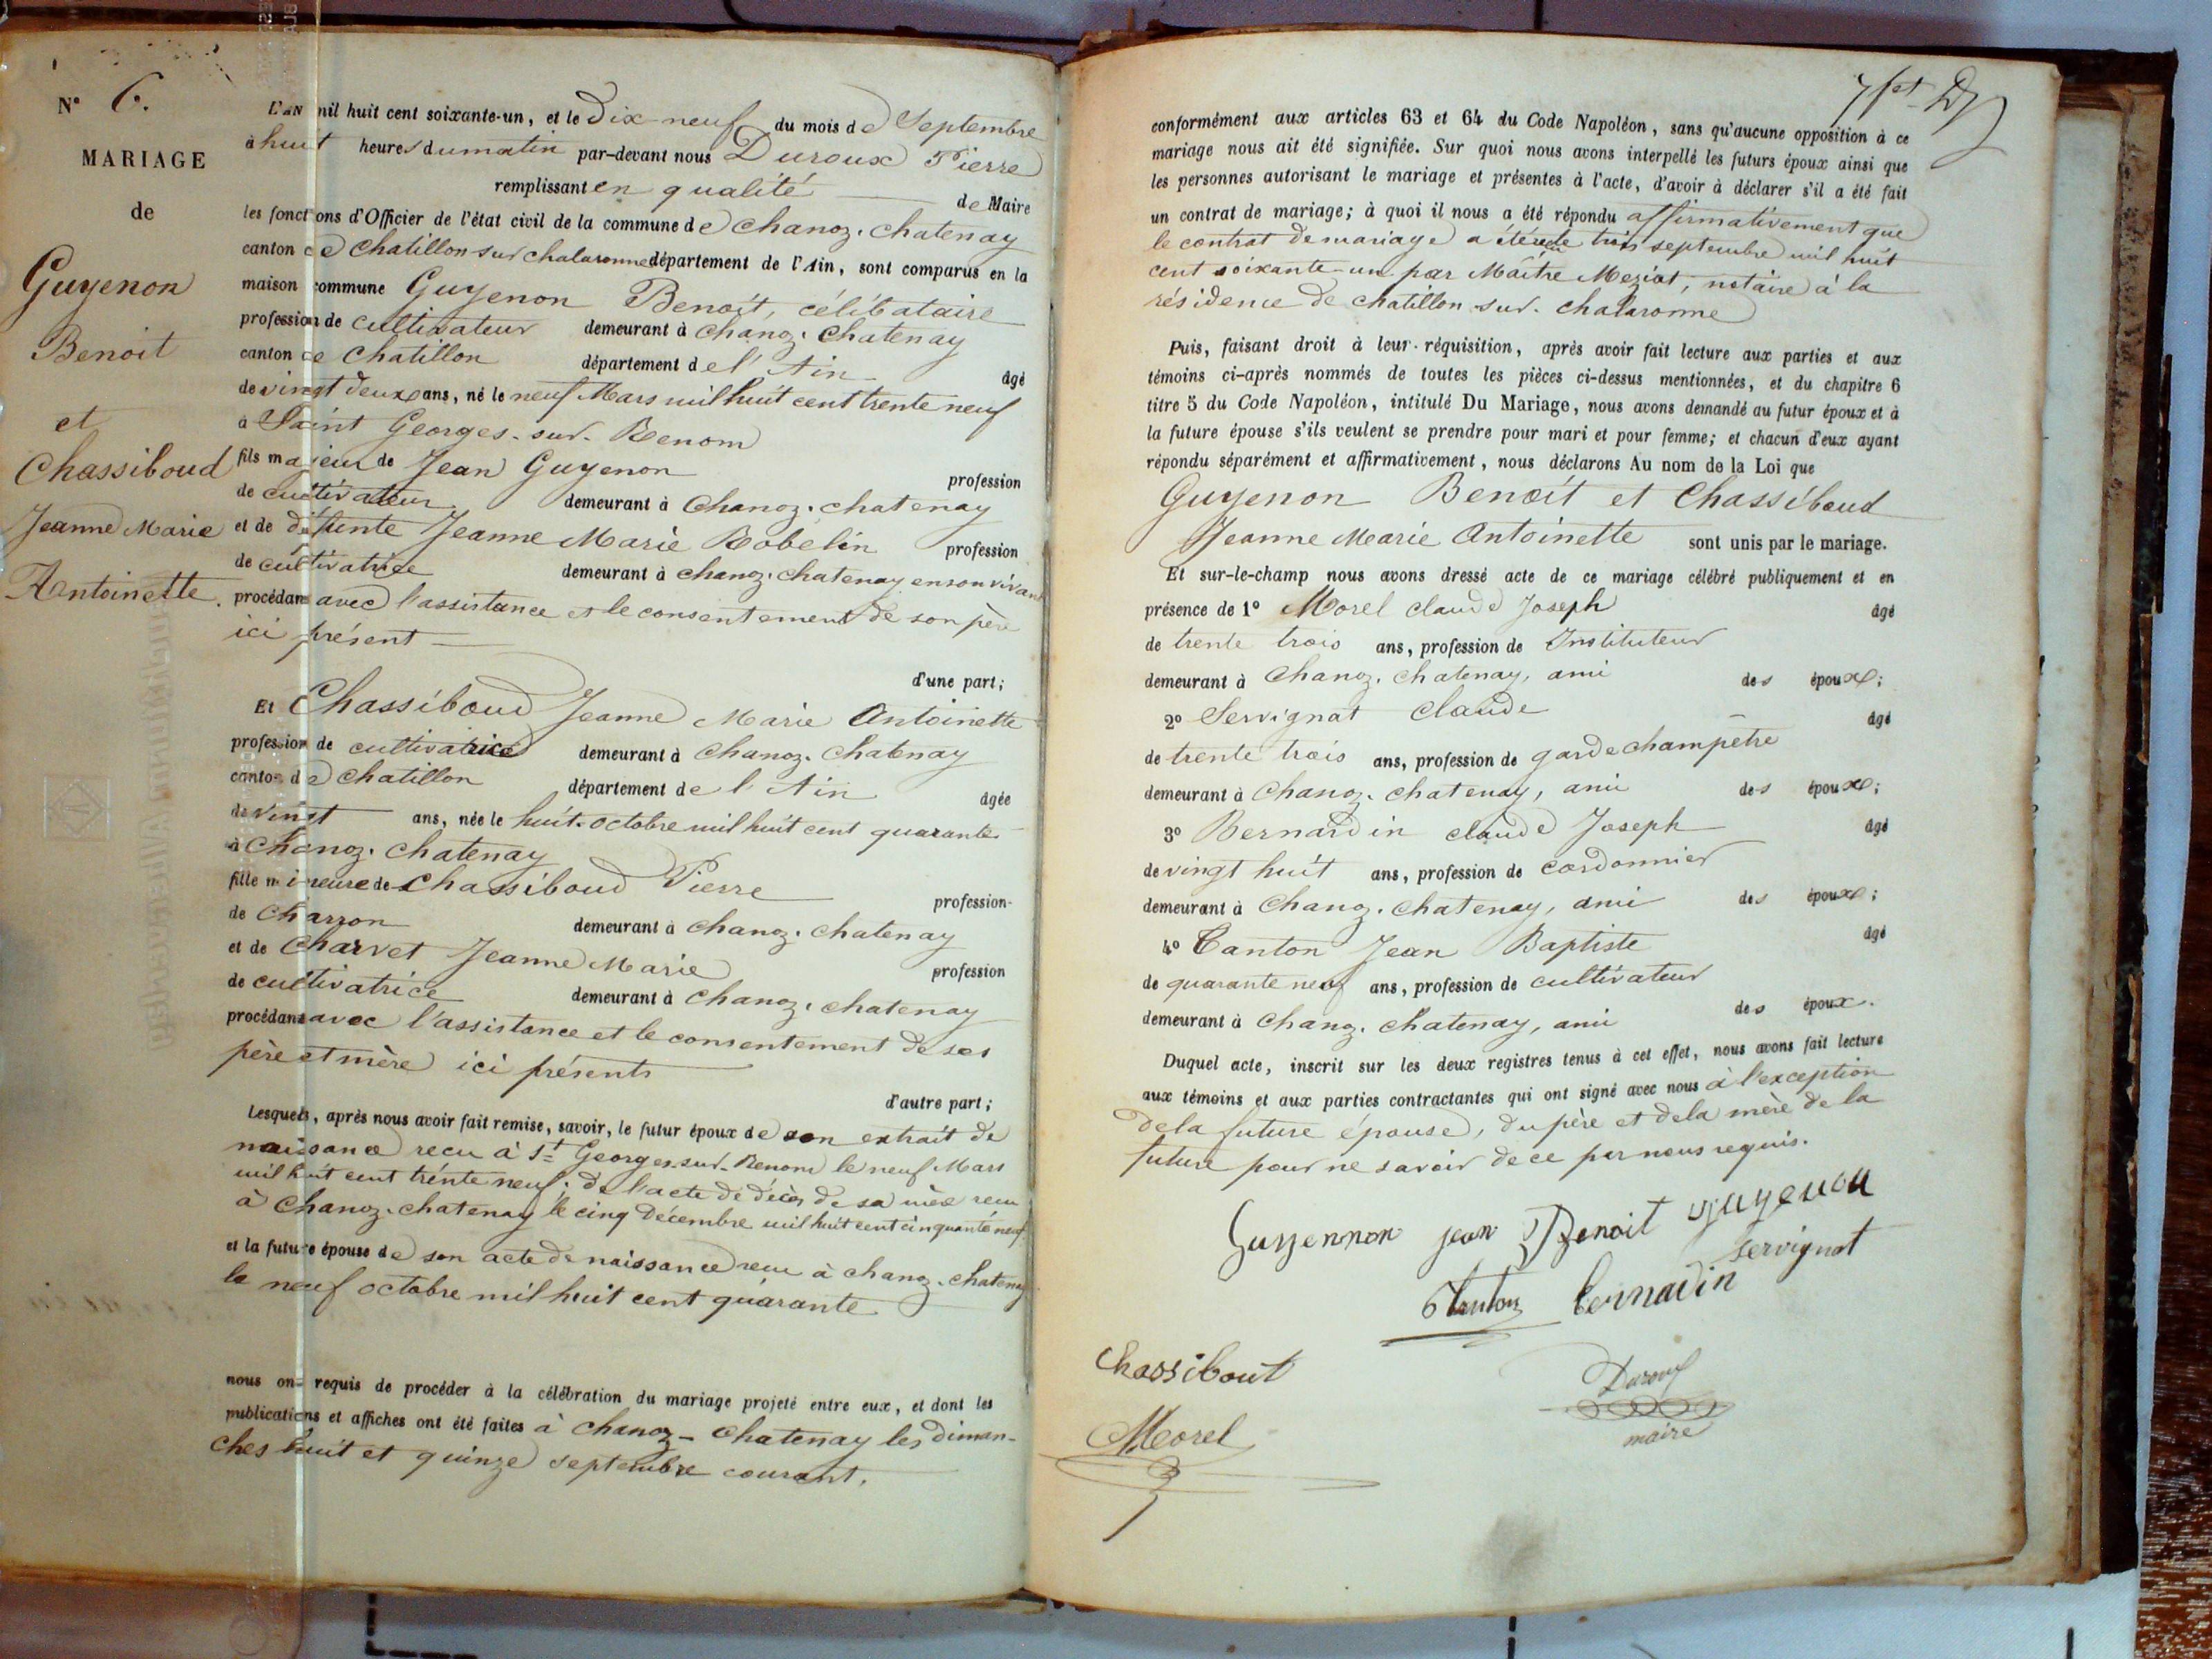 N° 6.
MARIAGE
de
Guyenon
Benoit
et
Chassiboud
Jeanne Marie
Antoinette.
L'AN mil huit cent soixante-un, et le Dix neuf du mois de Septembre
à huit heures du matin par-devant nous Duroux Pierre
remplissant en qualité de Maire
les fonctions d'Officier de l'état civil de la commune de Chanoz-Chatenay
canton de Chatillon sur Chalaronne département de l'Ain, sont comparus en la
maison commune Guyenon Benoit, célibataire
profession de cultivateur demeurant à Chanoz-Chatenay
canton de Chatillon département de l'Ain âgé
de vingt deux ans, né le neuf Mars mil huit cent trente neuf
à Saint Georges-sur-Renom
fils majeur de Jean Guyenon profession
de cultivateur demeurant à Chanoz-Chatenay
et de défunte Jeanne Marie Robelin profession
de cultivatrice demeurant à Chanoz-Chatenay en son vivant
procédant avec l'assistance et le consentement de son père
ici présent
d'une part;
Et Chassiboud Jeanne Marie Antoinette
profession de cultivatrice demeurant à Chanoz-Chatenay
canton de Chatillon département de l'Ain âgée
de vingt ans, née le huit octobre mil huit cent quarante
à Chanoz-Chatenay
fille mineure de Chassiboud Pierre profession
de Charron demeurant à Chanoz-Chatenay
et de Charvet Jeanne Marie profession
de cultivatrice demeurant à Chanoz-Chatenay
procédant avec l'assistance et le consentement de ses
père et mère ici présents
d'autre part;
Lesquels, après nous avoir fait remise, savoir, le futur époux de son extrait de
naissance recu à St Georges-sur-Renom le neuf Mars
mil huit cent trente neuf; de l'acte de décès de sa mère recu
à Chanoz-Chatenay le cinq Décembre mil huit cent cinquante neuf
et la future épouse de son acte de naissance recu à Chanoz-Chatenay
le neuf octobre mil huit cent quarante
nous ont requis de procéder à la célébration du mariage projeté entre eux, et dont les
publications et affiches ont été faites à Chanoz-Chatenay les diman-
ches huit et quinze septembre courant.
conformément aux articles 63 et 64 du Code Napoléon, sans qu'aucune opposition à ce
mariage nous ait été signifiée. Sur quoi nous avons interpellé les futurs époux ainsi que
les personnes autorisant le mariage et présentes à l'acte, d'avoir à déclarer s'il a été fait
un contrat de mariage; à quoi il nous a été répondu affirmativement que
le contrat de mariage a été recu le trois septembre mil huit
cent soixante-un par Maître Meziat, notaire à la
résidence de Chatillon-sur-Chalaronne
Puis, faisant droit à leur réquisition, après avoir fait lecture aux parties et aux
témoins ci-après nommés de toutes les pièces ci-dessus mentionnées, et du chapitre 6
titre 5 du Code Napoléon, intitulé Du Mariage, nous avons demandé au futur époux et à
la future épouse s'ils veulent se prendre pour mari et pour femme; et chacun d'eux ayant
répondu séparément et affirmativement, nous déclarons Au nom de la Loi que
Guyenon Benoit et Chassiboud
Jeanne Marie Antoinette sont unis par le mariage.
Et sur-le-champ nous avons dressé acte de ce mariage célébré publiquement et en
présence de 1° Morel Claude Joseph âgé
de trente trois ans, profession de Instituteur
demeurant à Chanoz-Chatenay, ami des époux;
2° Servignat Claude âgé
de trente trois ans, profession de garde champêtre
demeurant à Chanoz-Chatenay, ami des époux;
3° Bernardin Claude Joseph âgé
de vingt huit ans, profession de cordonnier
demeurant à Chanoz-Chatenay, ami des époux;
4° Canton Jean Baptiste âgé
de quarante neuf ans, profession de cultivateur
demeurant à Chanoz-Chatenay, ami des époux.
Duquel acte, inscrit sur les deux registres tenus à cet effet, nous avons fait lecture
aux témoins et aux parties contractantes qui ont signé avec nous à l'exception
de la future épouse, du père et de la mère de la
future pour ne savoir de ce par nous requis.
Guyennon jean Benoit guyenon
servignat
bernadin
Chassibout
Duroux
Morel
maire